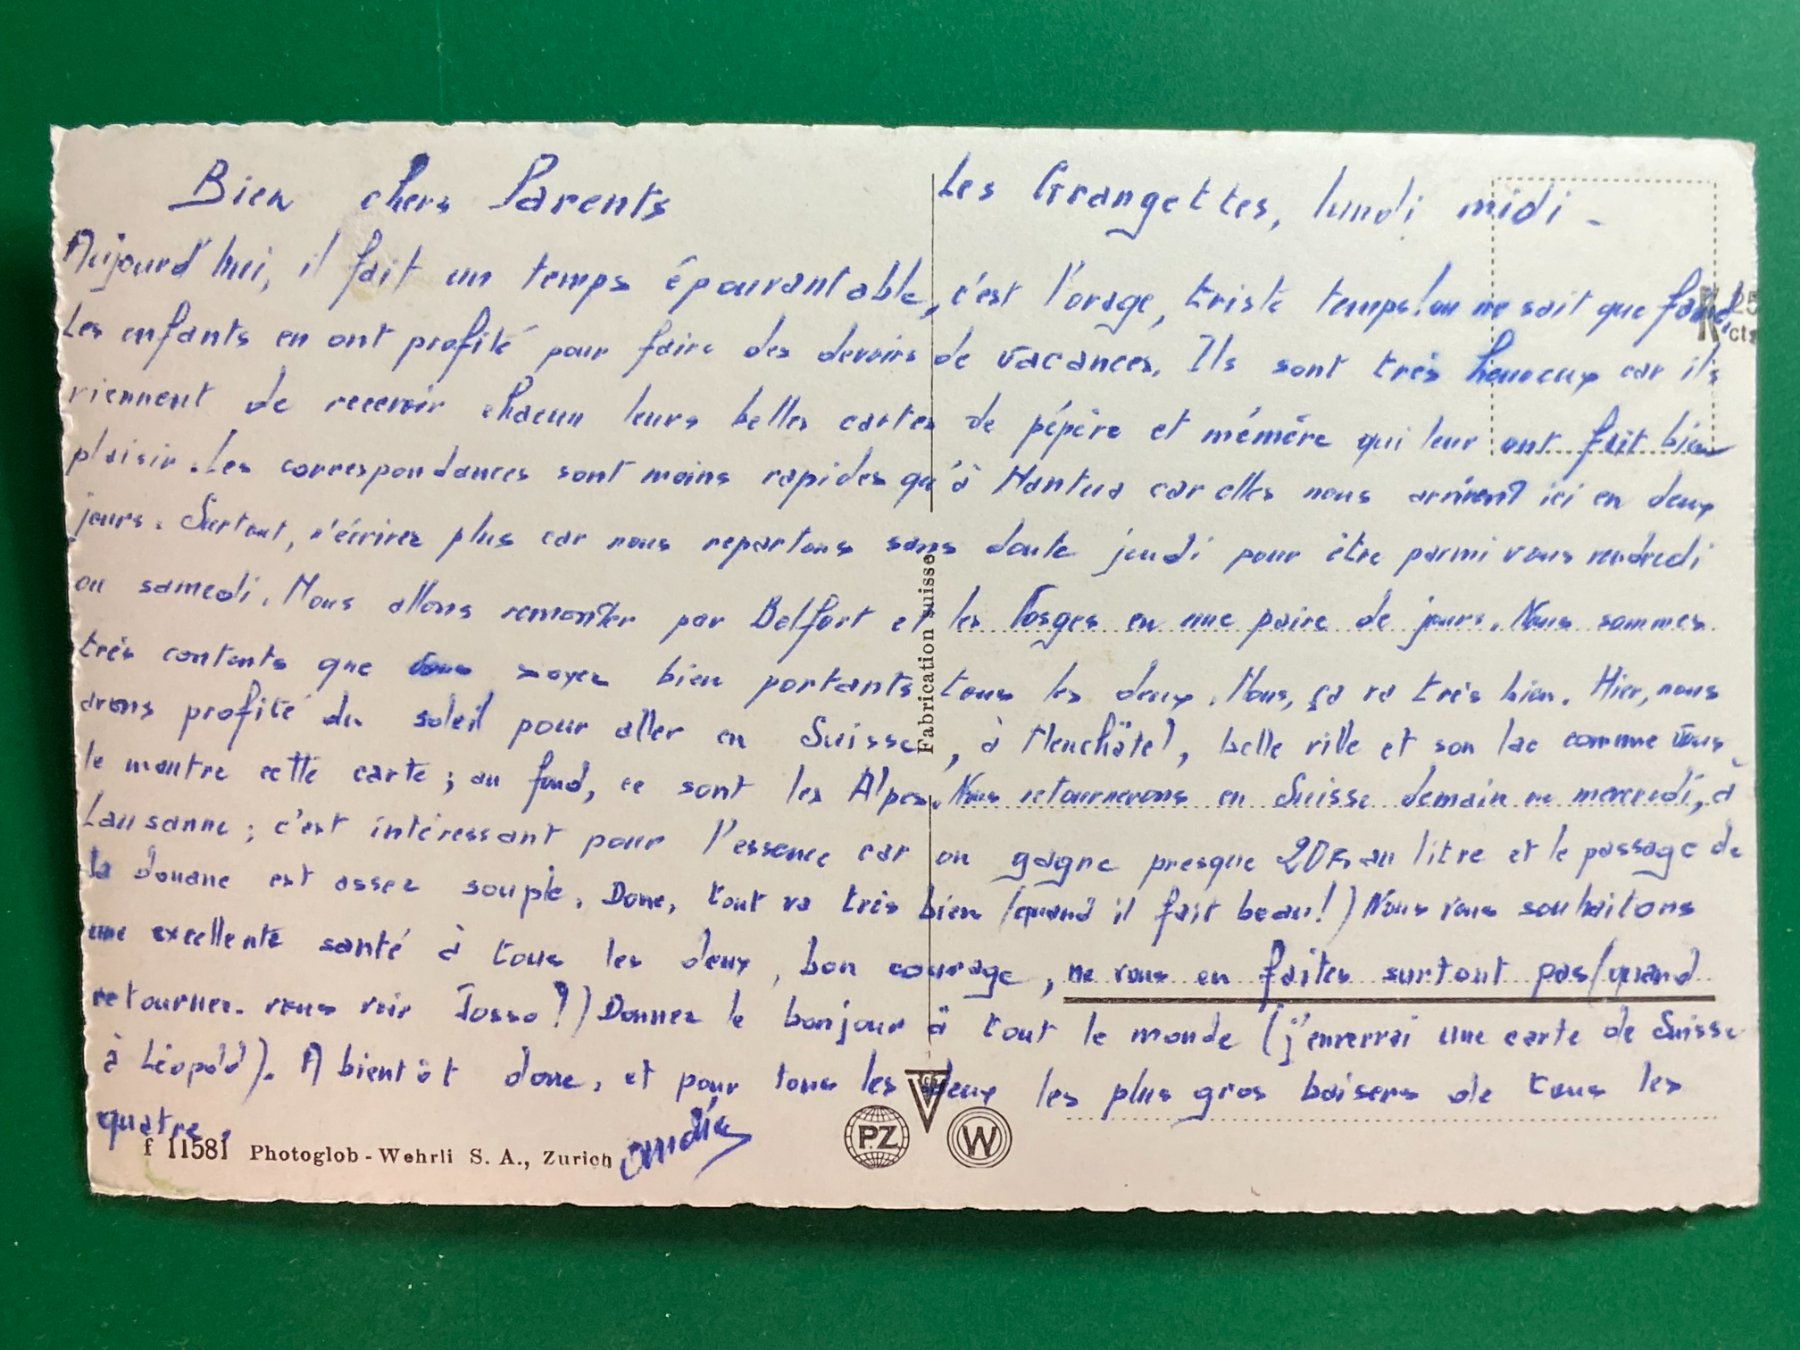 Bien chers Parents
Les Grangettes, lundi midi -
Aujourd'hui, il fait un temps épouvantable, c'est l'orage, triste temps! on ne sait que faire,
Les enfants en ont profité pour faire des devoirs de vacances. Ils sont très heureux car ils
viennent de recevoir chacun leurs belles cartes de pépère et mémère qui leur ont fait bien
plaisir. Les correspondances sont moins rapides qu'à Nantua car elles nous arrivent ici en deux
jours. Surtout, n'écrivez plus car nous repartons sans doute jeudi pour être parmi vous vendredi
ou samedi. Nous allons remonter par Belfort et les Vosges en une paire de jours. Nous sommes
très contents que vous soyez bien portants tous les deux. Nous, ça va très bien. Hier, nous
avons profité du soleil pour aller en Suisse, à Neuchâtel, belle ville et son lac comme vous
le montre cette carte; au fond, ce sont les Alpes. Nous retournerons en Suisse demain ou mercredi, à
Lausanne; c'est intéressant pour l'essence car on gagne presque 20Frs au litre et le passage de
la douane est assez souple. Donc, tout va très bien (quand il fait beau!) Nous vous souhaitons
une excellente santé à tous les deux, bon courage, ne vous en faites surtout pas (quand
retournez-vous voir ?) Donnez le bonjour à tout le monde (j'enverrai une carte de Suisse
à Léopold). A bientôt donc, et pour tous les deux les plus gros baisers de tous les
quatre.
Fabrication suisse
K 25
cts
PZ
W
f 11581 Photoglob-Wehrli S. A., Zurich